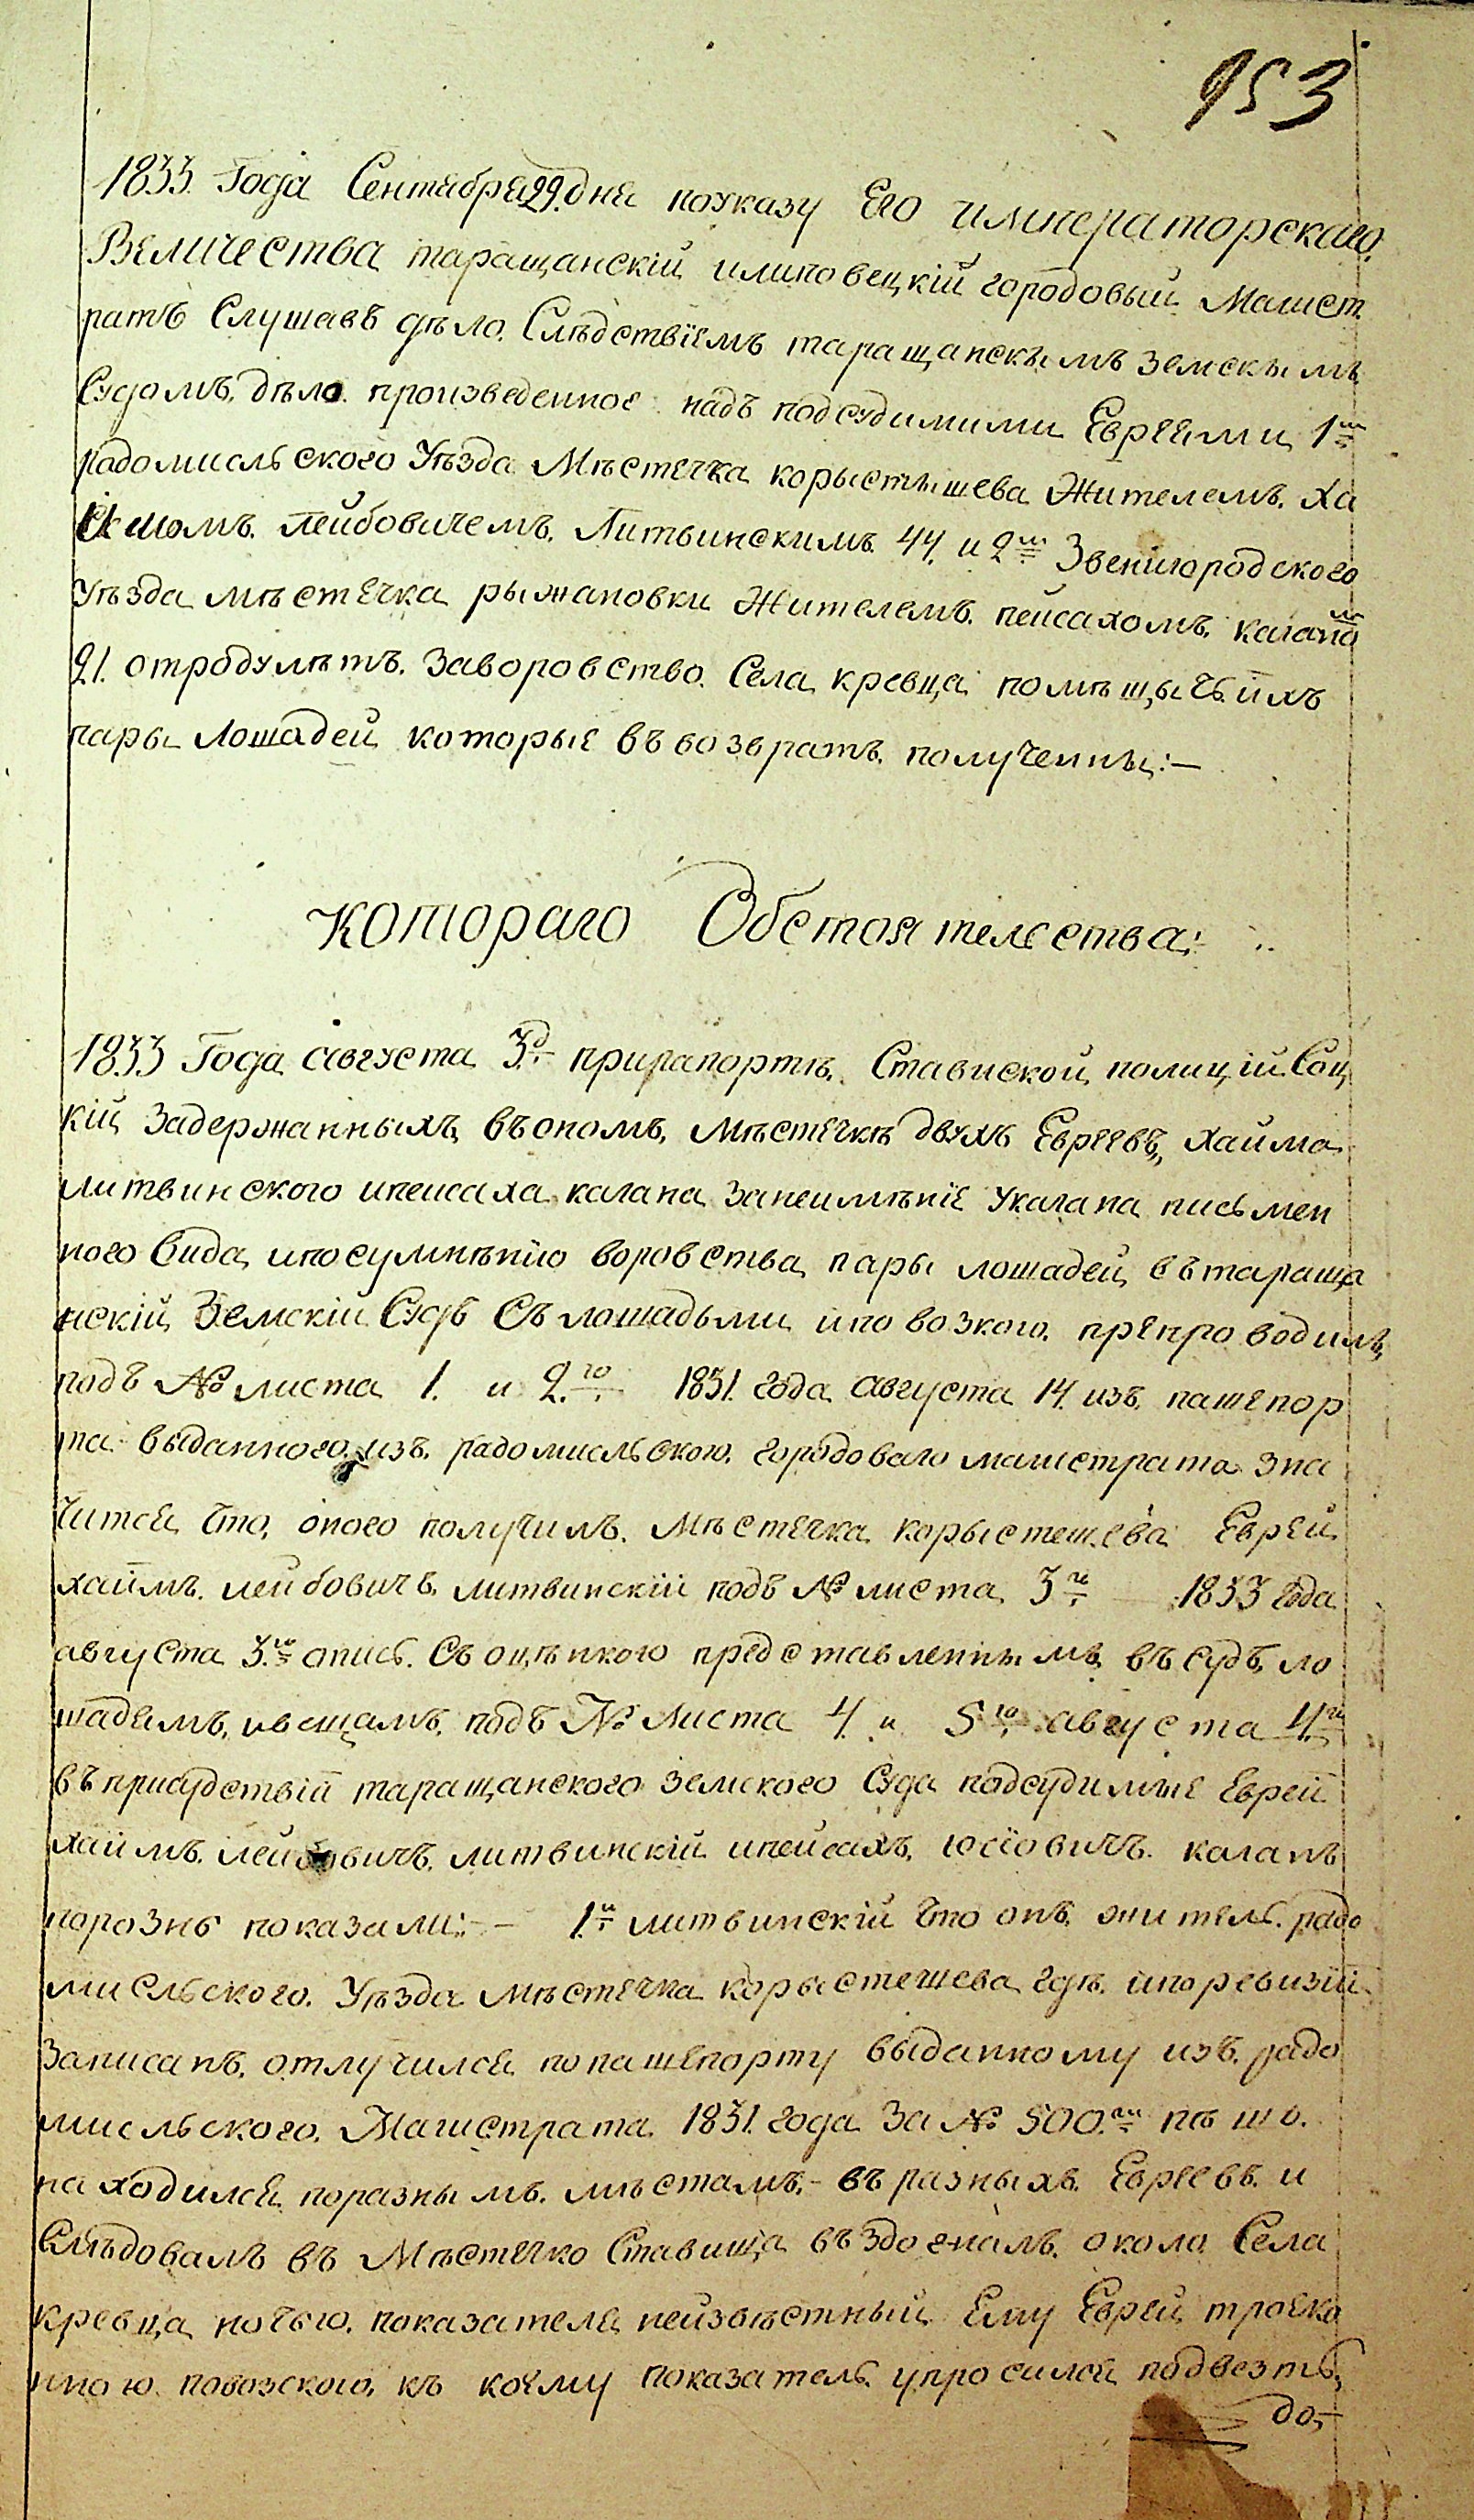 953
1833. Года Сентября 29. дня поуказу Его императорскаго.
Величества таращанскій илиповецкій городовый Магист
ратъ Слушавъ дѣло. Слѣдствіемъ таращанскымъ земскымъ
Судомъ. дѣло произведенное надъ подсудимими Евреями 1м
радомисльского Уѣзда Мѣстечка корыстышева Жителемъ. Ха
имомъ. лейбовичемъ. Литвинскимъ. 44. и 2м Звенигородского
уѣзда мѣстечка рыжановки Жителемъ. пейсахомъ. кагано м
21. отродулѣтъ. Заворовство. Села кревца помѣщычьихъ
пары Лошадей которые въвозвратъ. полученны:—
котораго Обстоятелсства:
1833 Года августа 3.д прирапортѣ. Ставиской полицій Соц
кій задержанныхъ въономъ. мѣстечкѣ двухъ Евреевъ,, хаима
литвинского ипейсаха кагана занеимѣніе укагана письмен
ного вида ипосумнѣнію воровства пары лошадей вътараща
нскій Земскій Судъ Съ лошадьми иповозкою. препроводилъ
подъ № листа 1. и 2.го 1831. года августа 14. изъ. пашепор
та выданного изъ. радомисльского. городоваго магистрата зна
чится что, оного получилъ. мѣстечка корыстешева Еврей
хаймъ. лейбовичъ. литвинскій подъ № листа 3м 1833 года
августа 3.го опись. Съ оцѣнкою представленнымъ въсудъ, ло
шадямъ, ивещамъ. подъ № листа 4. и 5го августа 4.го
въприсудствій таращанского земского Суда подсудимые Еврей
хаимъ. лейбовичъ. литвинскій ипейсахъ. юсіовичъ. каганъ
порознь показали:- – 1.й литвинскій что онъ. житель. радо
мисльского. Уѣзда мѣстечка корыстешева гдѣ. ипоревизіи
записанъ. отлучился попашепорту выданному изъ. радо
мисльского. Магистрата. 1831. года За № 500.м пѣшо.
находился. поразнымъ. мѣстамъ.- въразныхъ. Евреевъ. и
Слѣдовалъ въ Мѣстечко Ставища въздогналъ. около Села
кревца ночью. показателя неизвѣстный Ему Еврей трояко
нною. повозскою. къ коему показатель упросился подвезть,
до,-